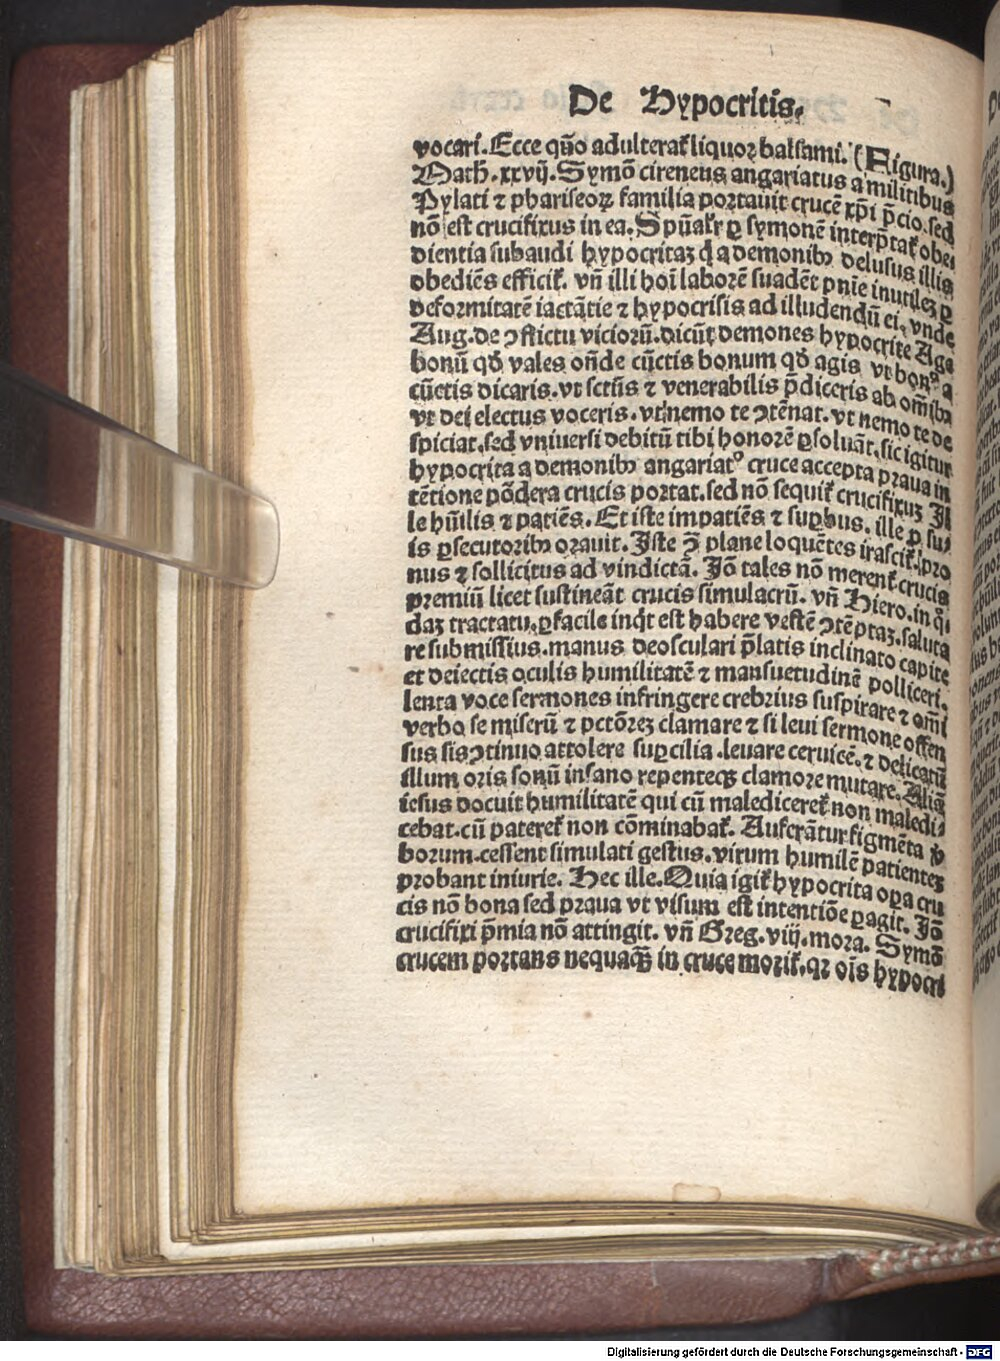 De Hypocritis.
vocari. Ecce qūo adulterat̉ liquoꝝ balsami. (Figura.)
Math. xxvij. Symō cireneus angariatus a militibus
Pylati ⁊ phariseoꝝ familia portauit crucē xp̄i p̄cio. sed
nō est crucifixus in ea. Spūalr̉ ꝑ symonē interp̄tat̉ obe⸗
dientia subaudi hypocritaꝫ q̄ a demonibꝰ delusus illis
obediēs efficit̉. vn̄ illi hoī laborē suadēt pn̄ie inutileꝫ ꝑ
deformitatē iactātie ⁊ hypocrisis ad illudendū ei. vnde
Aug. de ꝯflictu vicioꝝū. dicūt demones hypocrite Age
bonū qd̄ vales on̄de cūctis bonum qd̄ agis vt bonꝰ a
cūctis dicaris. vt sctūs ⁊ venerabilis p̄diceris ab om̄ibꝰ
vt dei electus voceris. vt nemo te ꝯtēnat. vt nemo te de
spiciat. sed vniuersi debitū tibi honorē ꝑsoluāt. sic igitur
hypocrita a demonibꝰ angariatꝰ cruce accepta praua in
tētione pōdera crucis portat. sed nō sequit̉ crucifixuꝫ Il
le hūilis ⁊ patiēs. Et iste impatiēs ⁊ suꝑbus. ille ꝑ su⸗
is ꝑsecutoribꝰ orauit. Iste plane loquētes irascit̉. pro
nus ⁊ sollicitus ad vindictā. Iō tales nō merent̉ crucis
premiū licet sustineāt crucis simulacrū. vn̄ Hiero. in q̄
daꝫ tractatu. ꝑfacile inqt est habere vestē ꝯtēptaꝫ. saluta
re submissius. manus deosculari p̄latis inclinato capite
et deiectis oculis humilitatē ⁊ mansuetudinē polliceri.
lenta voce sermones infringere crebrius suspirare ⁊ om̄i
verbo se miserū ⁊ pctōreꝫ clamare ⁊ si leui sermone offen
sus sis ꝯtinuo attolere suꝑcilia. leuare ceruicē. ⁊ delicatū
illum oris sonū insano repenteqꝫ clamore mutare. Aliā
iesus docuit humilitatē qui cū malediceret̉ non maledi⸗
cebat. cū pateret̉ non cōminabat̉. Auferātur figmēta ꝟ
borum. cessent simulati gestus. virum humilē patienteꝫ
probant iniurie. Hec ille. Quia igit̉ hypocrita oꝑa cru
cis nō bona sed praua vt visum est intentiōe ꝑagit. Iō
crucifixi p̄mia nō attingit. vn̄ Greg. viij. mora. Symō
crucem portans nequaqꝫ in cruce morit̉. qꝛ oīs hypocri
Digitalisierung gefördert durch die Deutsche Forschungsgemeinschaft - DFG